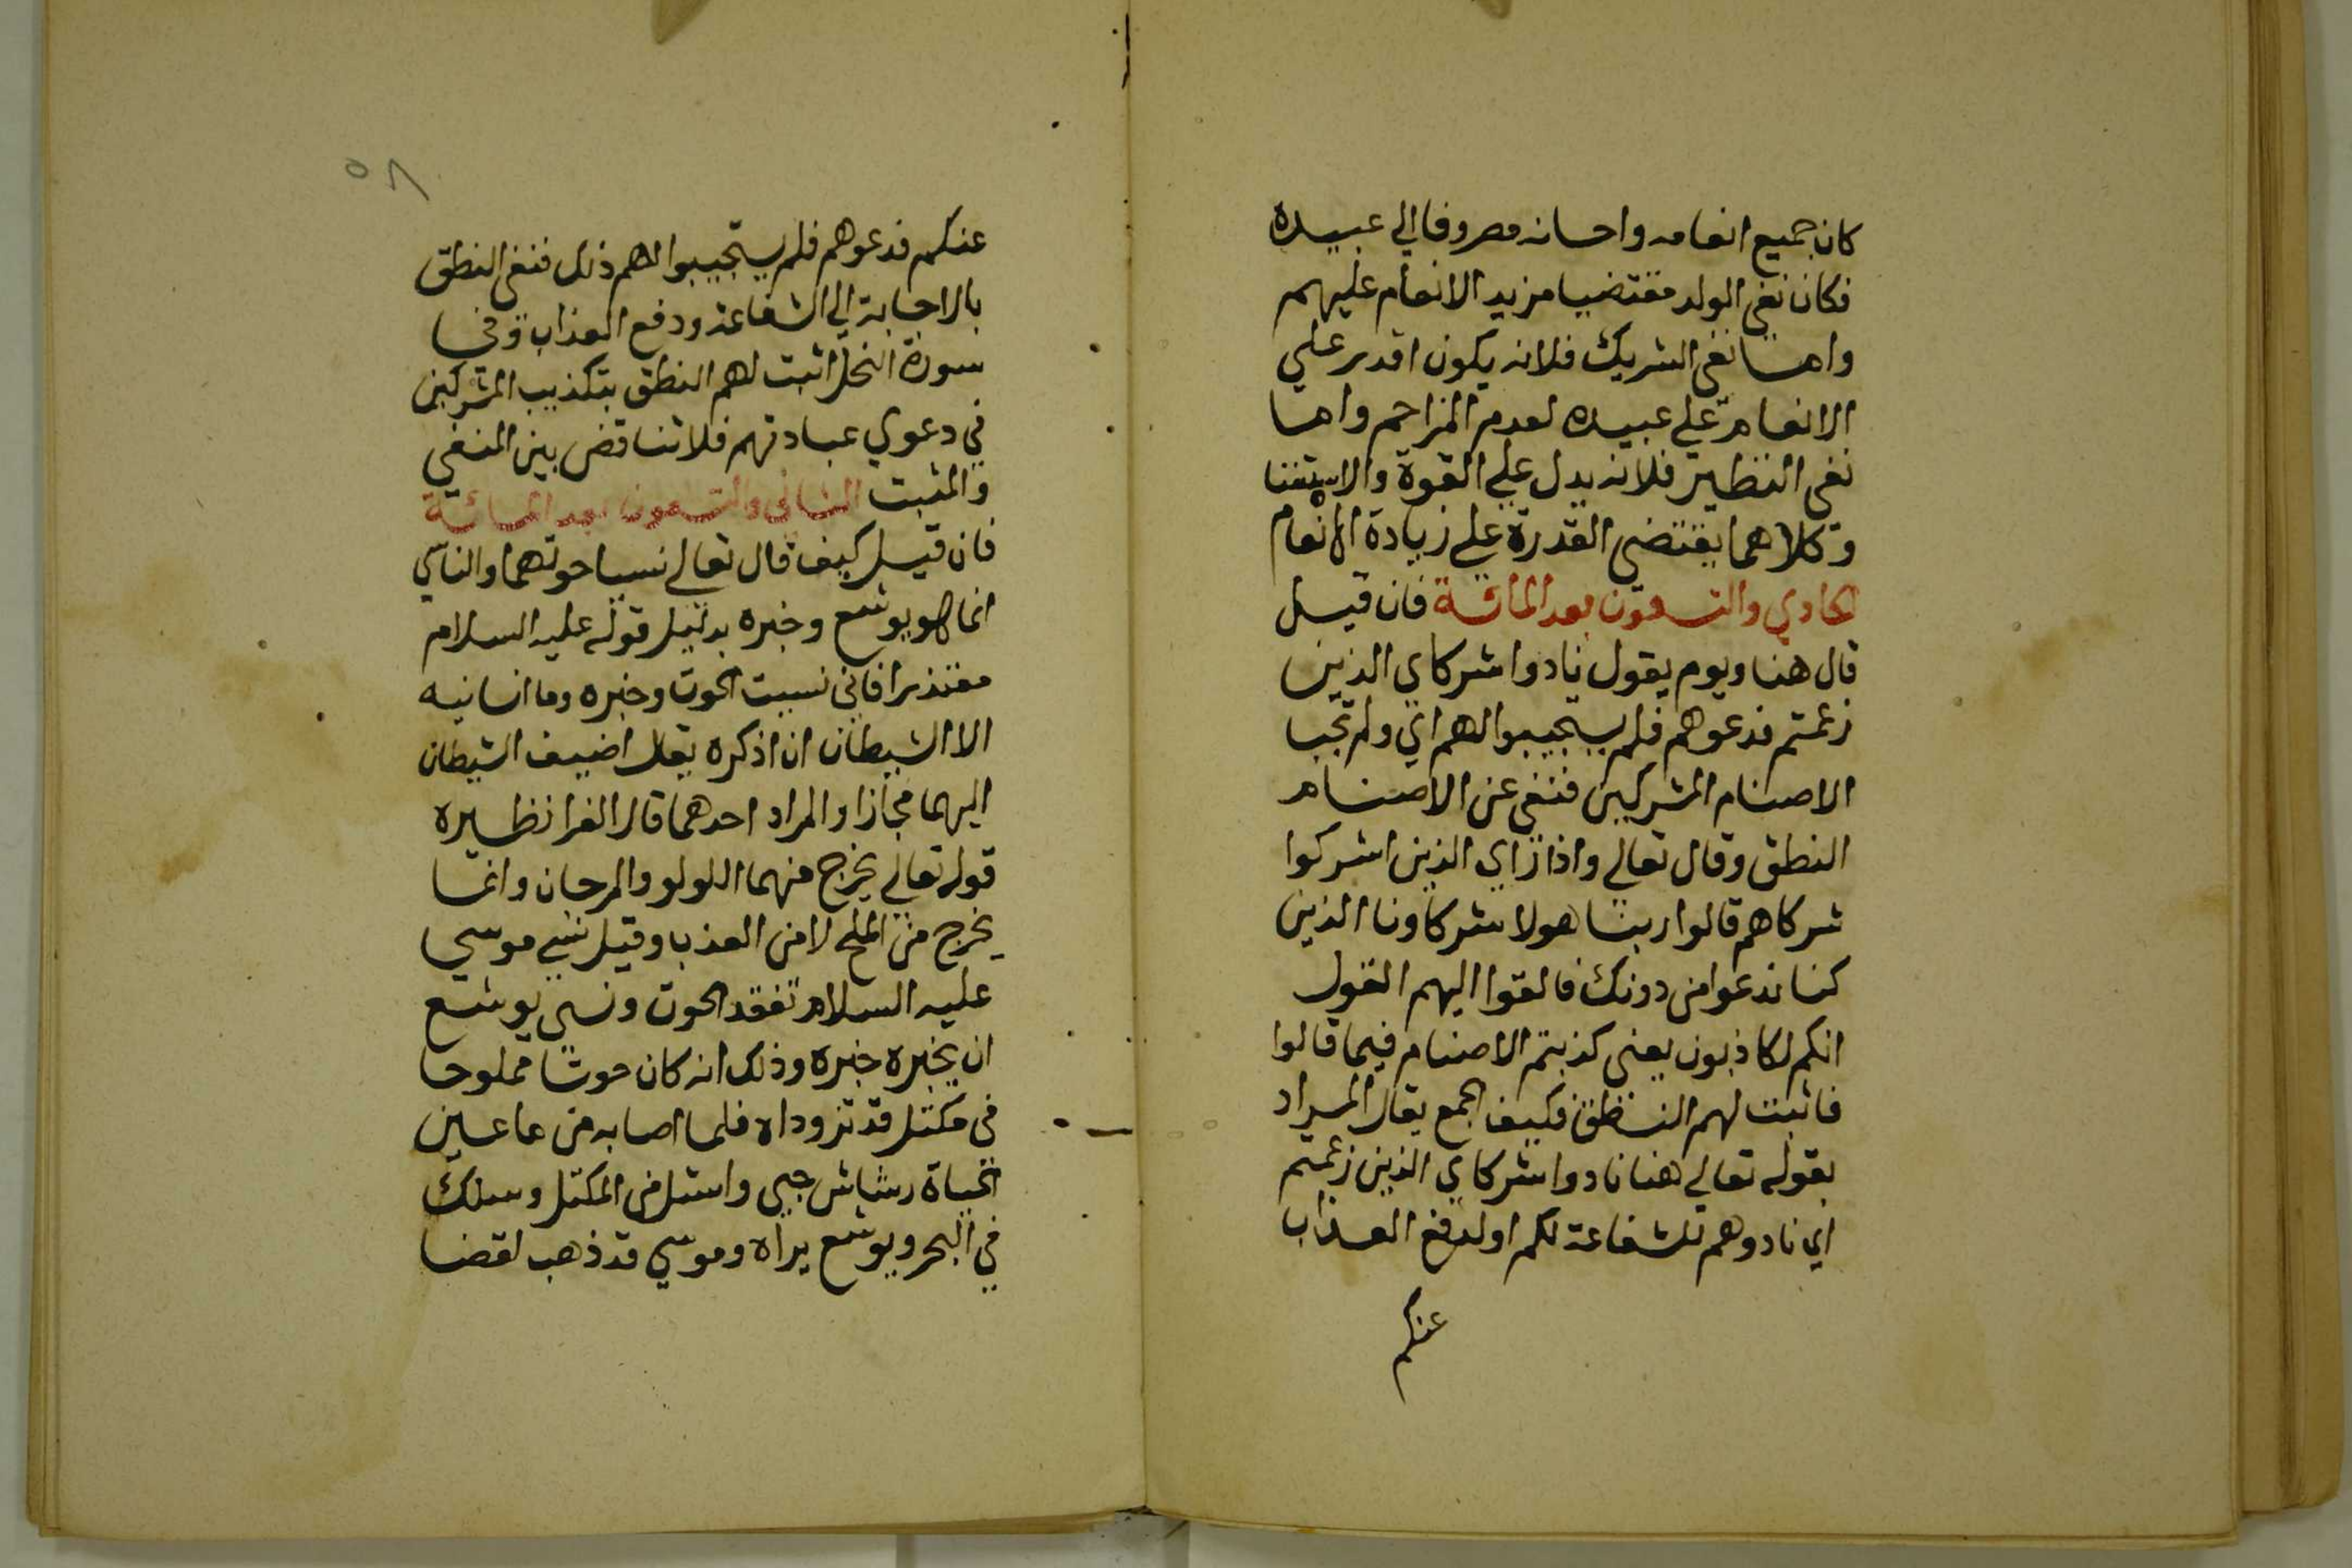 كان جميع انعامه واحسانه مصروفا الي عبيده
فكان نفي الولد مقتضيا مزيد الانعام عليهم
واما نفي الشريك فلانه يكون اقدر علي
الانعام علي عبيده لعدم المزاحم واما
نفي النظير فلانه يدل علي القوة والاستغنا
وكلاهما يقتضي القدرة علي زيادة الانعام
الحادي والتسعون بعد المائة فان قيل
قال هنا ويوم يقول نادوا شركاي الذين
زعمتم فدعوهم فلم يستجيبوا لهم اي ولم تجب
الاصنام المشركين فنفي عن الاصنام
النطق وقال تعالي واذا راي الذين اشركوا
شركاهم قالوا ربنا هولا شركاونا الذين
كنا ندعوا من دونك فالقوا اليهم القول
انكم لكاذبون يعني كذبتم الاصنام فيما قالوا
فاثبت لهم النطق فكيف الجمع يقال المراد
بقوله تعالي هنا نادوا شركاي الذين زعمتم
اي نادوهم للشفاعة لكم او لدفع العذاب
عنكم
٥٨
عنكم فدعوهم فلم يستجيبوا لهم ذلك فنفي النطق
بالاجابة الي الشفاعة ودفع العذاب وفي
سورة النحل اثبت لهم النطق بتكذيب المشركين
في دعوي عبادتهم فلا تناقض بين المنفي
والمثبت الثاني والتسعون بعد المائة
فان قيل كيف قال تعالي نسيا حوتهما والناسي
انما هو يوشع وخبره بدليل قوله عليه السلام
معتذرا فاني نسيت الحوت وخبره وما انسانيه
الا الشيطان ان اذكره يقال اضيف الشيطان
اليهما مجازا والمراد احدهما قال الفرا نظيره
قوله تعالي يخرج منهما اللولو والمرجان وانما
يخرج من الملح لا من العذب وقيل نسي موسي
عليه السلام تفقد الحوت ونسي يوشع
ان يخبره خبره وذلك انه كان حوتا مملوحا
في مكتل قد تزوداه فلما اصابه من ما عين
الحياة رشاش حيي وانسل من المكتل وسلك
في البحر ويوشع يراه وموسي قد ذهب لقضا